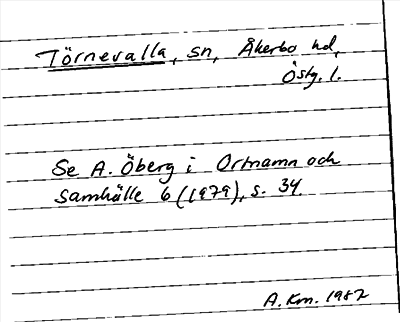 Törnevalla, sn, Åkerbo hd,
Östg. l.
Se A. Öberg i Ortnamn och
samhälle 6 (1979), s. 34.
A. Km. 1982